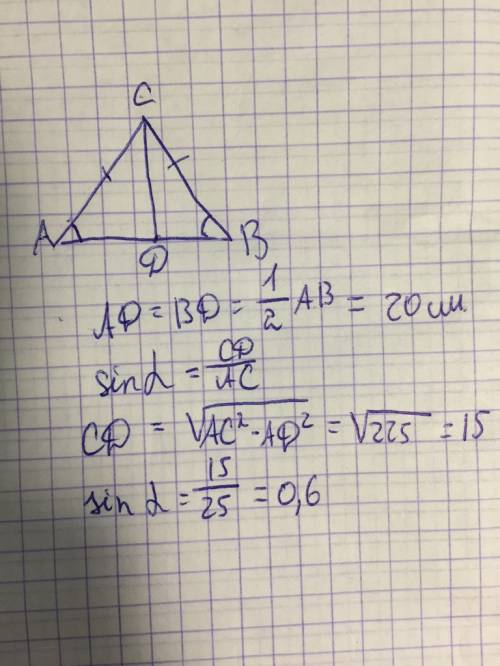 C
A
B
D
AD = BD = 1/2 AB = 20 см.
sin α = CD/AC
CD = √(AC² - AD²) = √225 = 15
sin α = 15/25 = 0,6